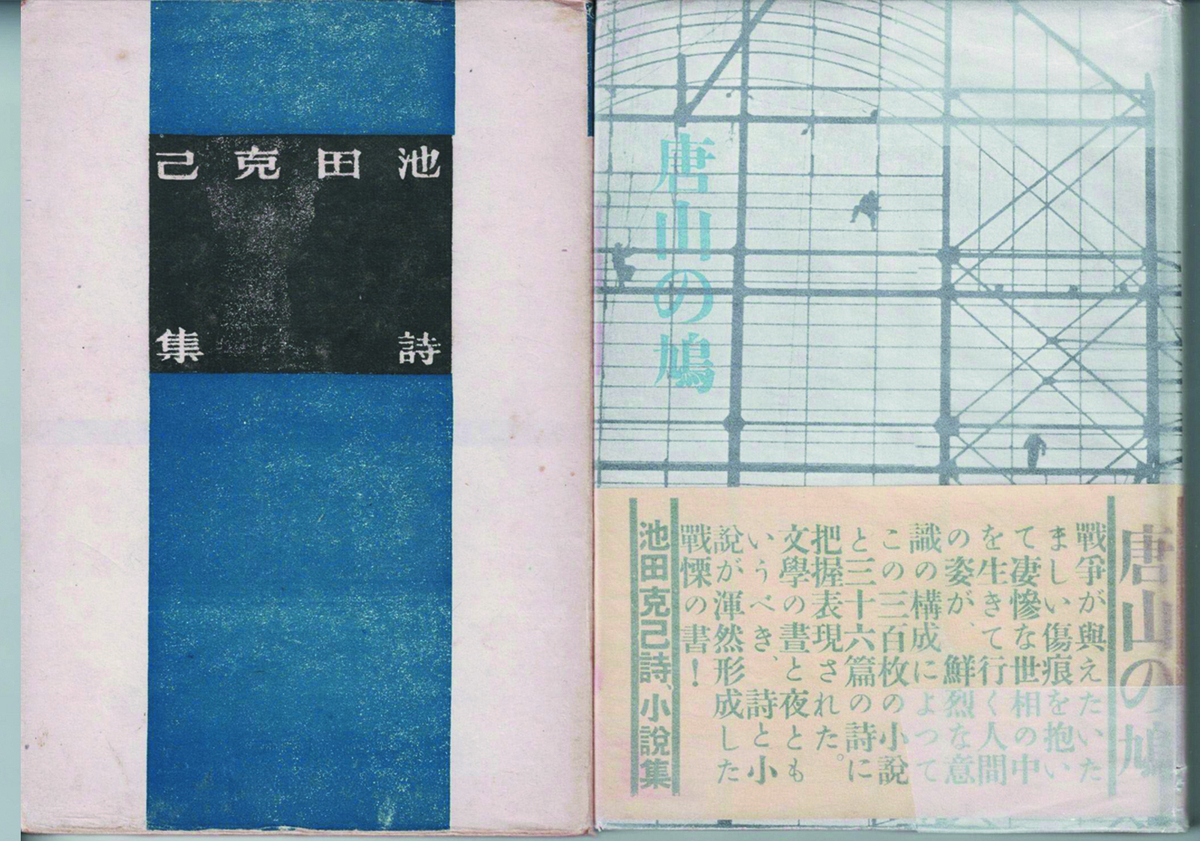 池田克己
詩集
唐山の鳩
唐山の鳩
戰爭が與えたいた
ましい傷痕を抱い
て凄慘な世相の中
を生きて行く人間
の姿が、鮮烈な意
識の構成によつて
この三百枚の小説
と三十六篇の詩に
把握表現された。
文學の晝と夜とも
いうべき、詩と小
説が渾然形成した
戰慄の書！
池田克己詩、小說集